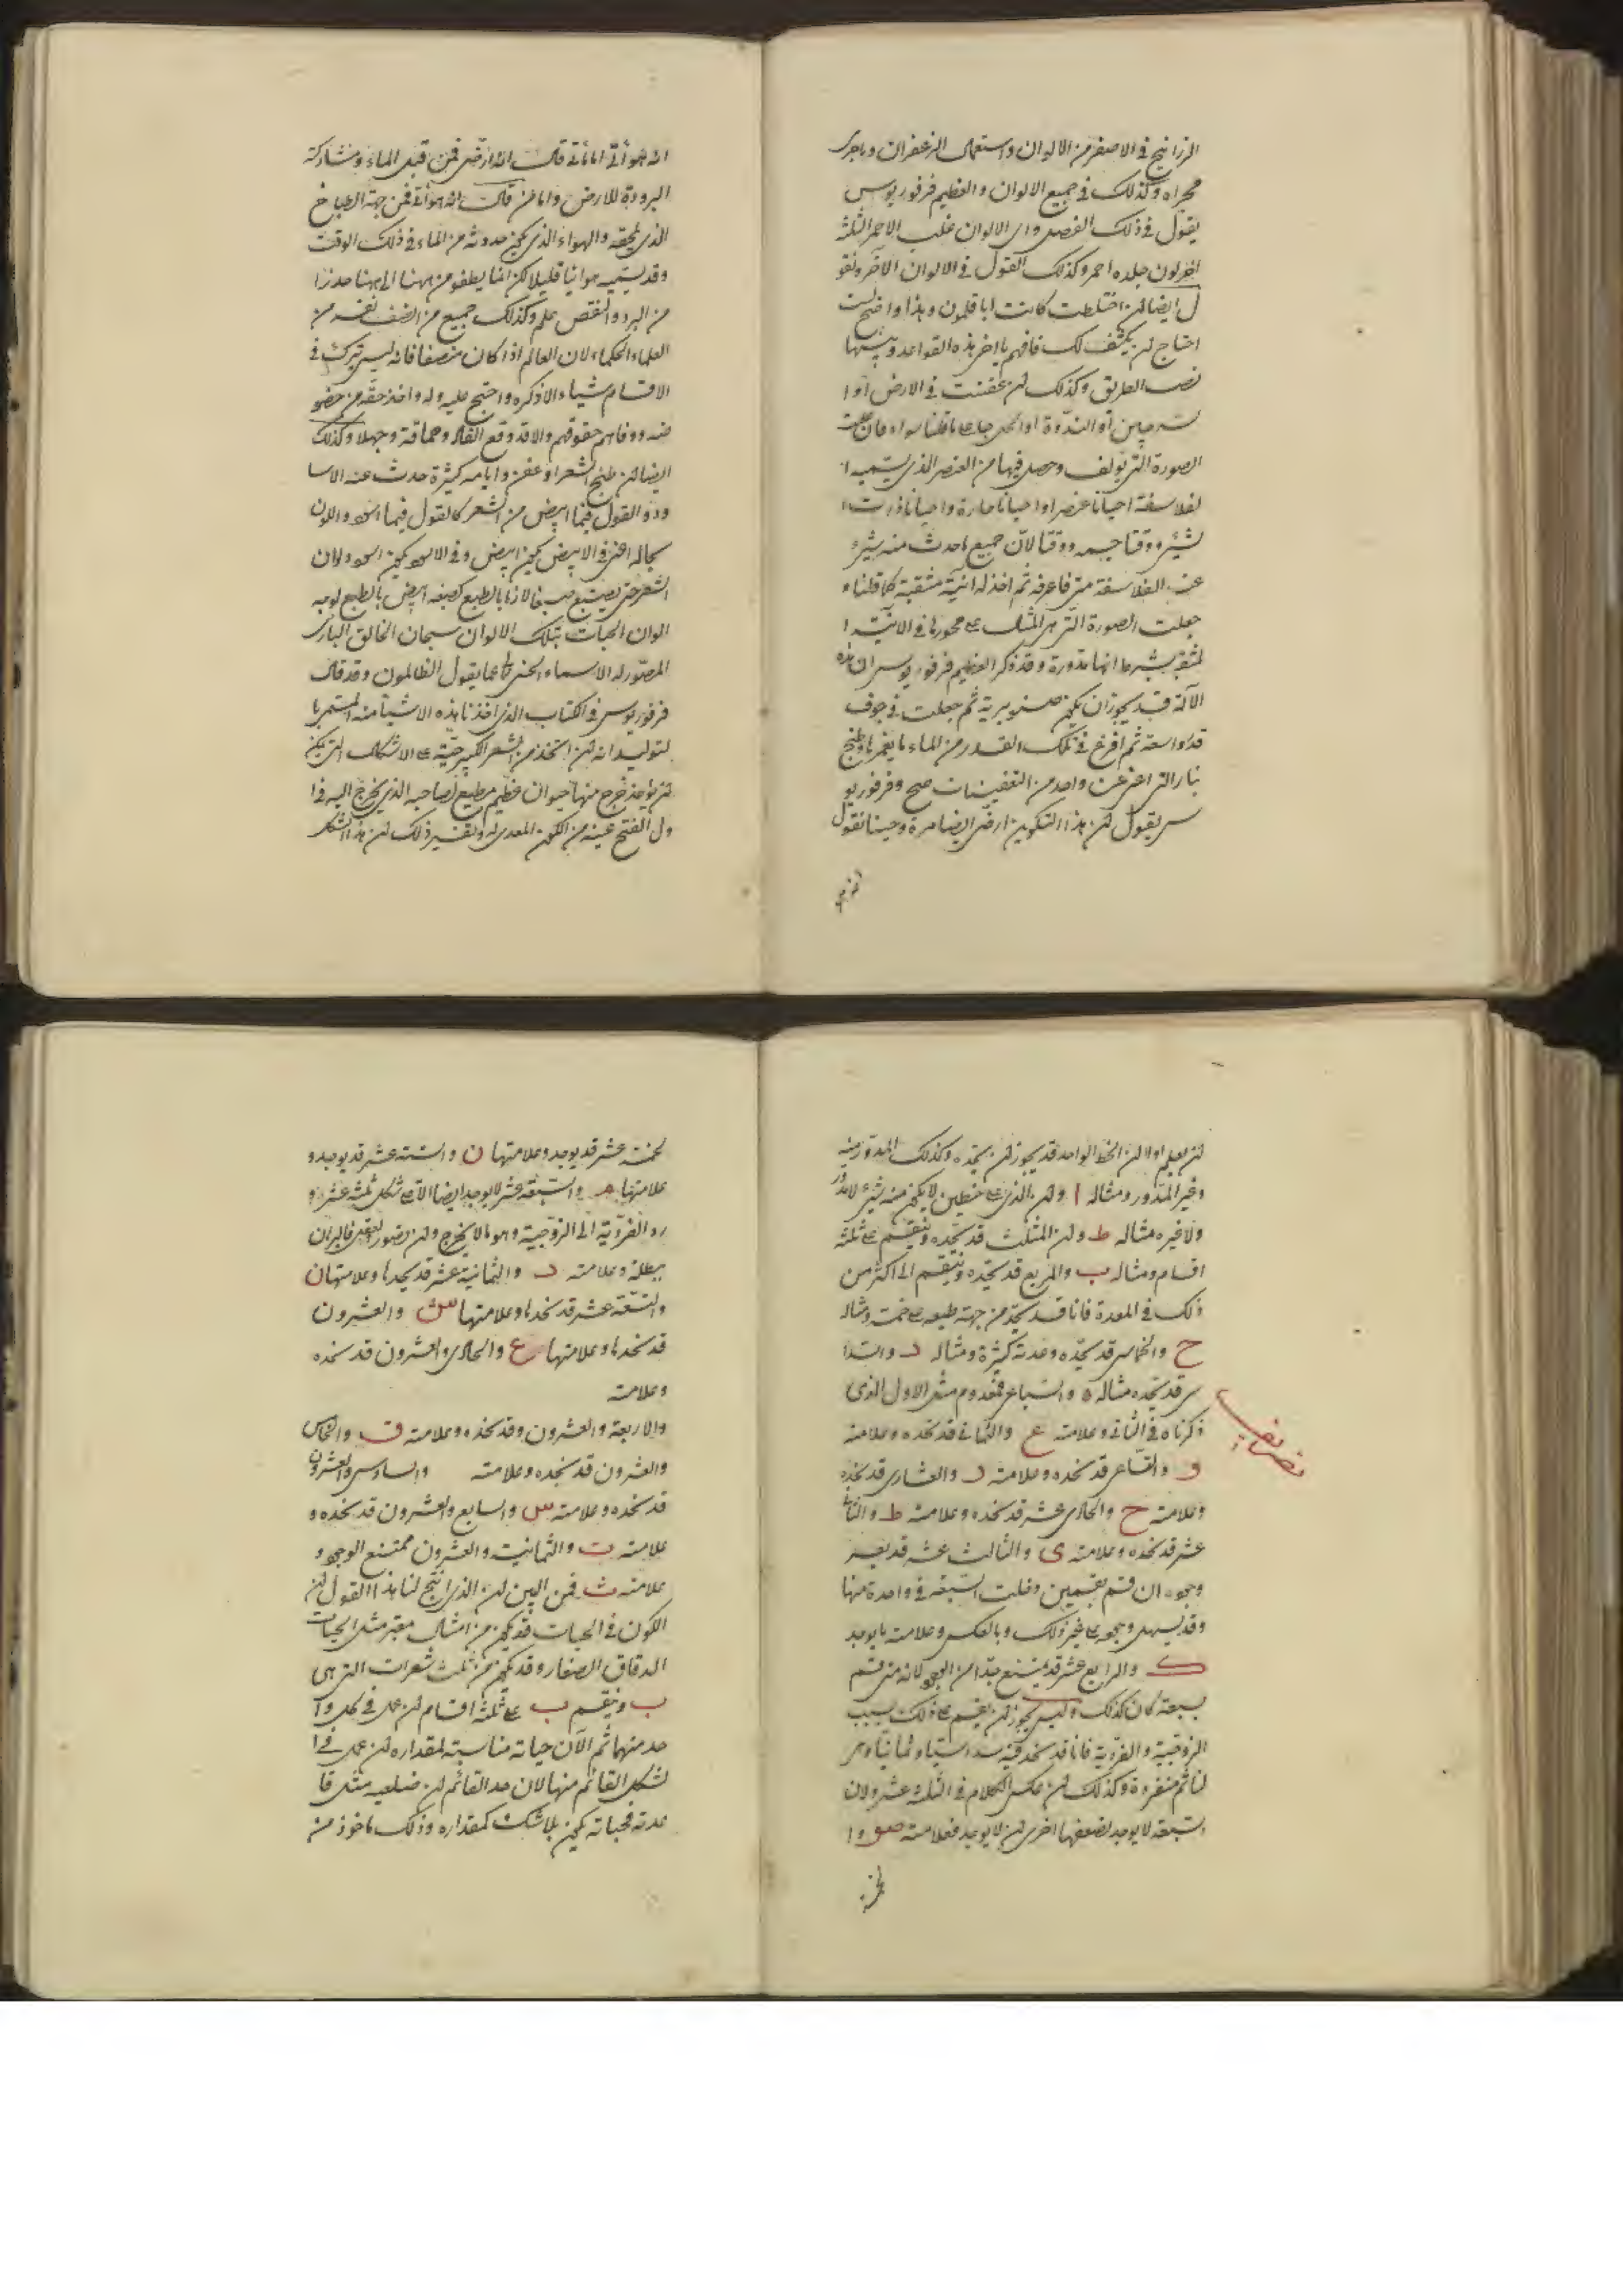 الزرانيخ في الاصفر من الالوان واستعمال الزعفران وما جرى
مجراه وكذلك في جميع الالوان والعظيم فرفوريوس
يقول في ذلك الفصل واى الالوان غلب الاحمر الثلثة
اخر لون جلده احمر وكذلك القول في الالوان الاخر ونقو
ل ايضا لن اختلطت كانت ابا قلمون وهذا واضح ليت
احتاج لن يكشف لك فافهم يا اخي هذه القواعد وبينها
نصب الطريق وكذلك لن عفنت في الارض او ا
لسرجين او الندوة او الحل جا على ما قلناه سواء فان
الصورة التي تؤلف وحصل فيها من العنصر الذي يسميه ا
لفلاسفة احيانا عنصرا واحيانا مادة واحيانا ذات
لشيء ووقتا جسمه ووقتا لان جميع ما حدث منه شيء
عند الفلاسفة متى فاعرفه ثم اخذ له انية مثقبة كما قلناه
جعلت الصورة التي هي المثال على محورها في الانية ا
لمثقبة بشرط انها مدورة وقد ذكر العظيم فرفوريوس ان هذه
الآلة قد يجوز ان يكون صنوبرية ثم جعلت في جوف
قدر واسعة ثم افرغ في تلك القدر من الماء ما يغمرها وطبخ
بنار التي اعني عن واحد من التعفينات صح وفرفوريو
س يقول لن هذا التكوين ارضي ايضا مرة وحينا نقول
انه هوائي اما من قال انه ارضي فمن قبل الماء ومشاركة
البرودة للارض واما من قال انه هوائي فمن جهة الطباخ
الذي لحقه والهواء الذي يكون حدوثه من الماء في ذلك الوقت
وقد يسميه هوائيا قليلا لكن انما يطفو من ههنا الى ههنا حذرا
من البرد والنقص علم وكذلك جميع من انصف نفسه من
العلماء الحكماء لان العالم اذا كان منصفا فانه ليس يترك في
الاقسام شيئا الا ذكره واحتج عليه وله واخذ حقه من خصو
مه ووفاهم حقوقهم والا قد وقع الفساد وحماقة وجهلا وكذلك
ايضا لن طبخ الشعر او عفن وايامه كثيرة حدث عنه الاسا
ود والقول فيما ابيض من الشعر كالقول فيما اسود واللون
بحاله اعني في الابيض يكون ابيض وفي الاسود يكون اسود ولان
الشعر متى يصبغ صبغا لازما بالطبع كصبغه ابيض بالطبع يوجد
الوان الحيات بتلك الالوان سبحان الخالق البارئ
المصور له الاسماء الحسنى تعالى عما يقول الظالمون وقد قال
فرفوريوس في الكتاب الذي اخذنا هذه الاشياء منه المستمر با
لتوليد انه لن اتخذ من الشعر الكبير حية على الاشكال التي يمكن
لن يؤخذ خرج منها حيوان عظيم مطيع لصاحبه الذي يخرج اليه في ا
ول الفتح عينه من الكون المعدي له وتفسير ذلك لن هذا الشكل
لن تعلم اولا لن الخط الواحد قد يجوز لن نتخذه وكذلك المدور منه
وغير المدور ومثاله ا ولن الذي على خطين لا يكون منه شيء لا مدور
ولا غيره مثاله ط ولن المثلث قد نتخذه وينقسم على ثلثة
اقسام ومثاله ب والمربع قد نتخذه وينقسم الى اكثر من
ذلك في العدة فانا قد نتخذ من جهة طبعه على خمسة ومثاله
ح والخماسي قد نتخذه وعدته كثيرة ومثاله د والسدا
سي قد نتخذه مثاله ه والسباعي فمعدوم مثل الاول الذي
ذكرناه في الثاني وعلامته ع والثماني قد نتخذه وعلامته
و والتساعي قد نتخذه وعلامته د والعشاري قد نتخذه
وعلامته ح والحادي عشر قد نتخذه وعلامته ط والثاني
عشر قد نتخذه وعلامته ى والثالث عشر قد يعسر
وجوده ان قسم بقسمين دخلت السبعة في واحدة منها
وقد يسهل وجوده على غير ذلك وبالعكس وعلامته ما يوجد
ك والرابع عشر قد يمتنع جدا من الوجود لانه متى قسم
بسبعة كان كذلك وليس يجوز لن يقسم على ذلك بسبب
الزوجية والفردية فانا قد نتخذ فيه سداسيا وثمانيا وهي
لنا ثم منفردة وكذلك لن عكس الكلام في الثلثة عشر ولان
السبعة لا يوجد لضعفها اخرى لن لا يوجد فعلامته صو وا
لخمسة عشر قد يوجد وعلامتها ن والستة عشر قد يوجد و
علامتها م والسبعة عشر لا يوجد ايضا الا على شكل ثلثة عشر و
رد الفردية الى الزوجية وهو ما لا يخرج ولن تصور لعقل فالبرهان
يبطله وعلامته د والثمانية عشر قد نتخذها وعلامتها ن
والتسعة عشر قد نتخذها وعلامتها س والعشرون
قد نتخذها وعلامتها ع والحادي والعشرون قد نتخذه
وعلامته
والاربعة والعشرون وقد نتخذه وعلامته ق والخامس
والعشرون قد نتخذه وعلامته والسادس والعشرون
قد نتخذه وعلامته س والسابع والعشرون قد نتخذه و
علامته ت والثمانية والعشرون ممتنع الوجود و
علامته ث فمن البين لن الذي انتج لنا هذا القول لن
الكون في الحيات قد يكون من امثال مقبر مثل الحيات
الدقاق الصغار وقد يكون من ثلث شعرات التي هي
ب وينقسم ب على ثلثة اقسام لن عمل في كل وا
حد منها ثم الآن حياته مناسبة لمقداره لن عمل في ا
لشكل القائم منها لان حد القائم لن ضلعيه مثل قا
عدته فحياته يكون بلا شك كمقداره وذلك ماخوذ من